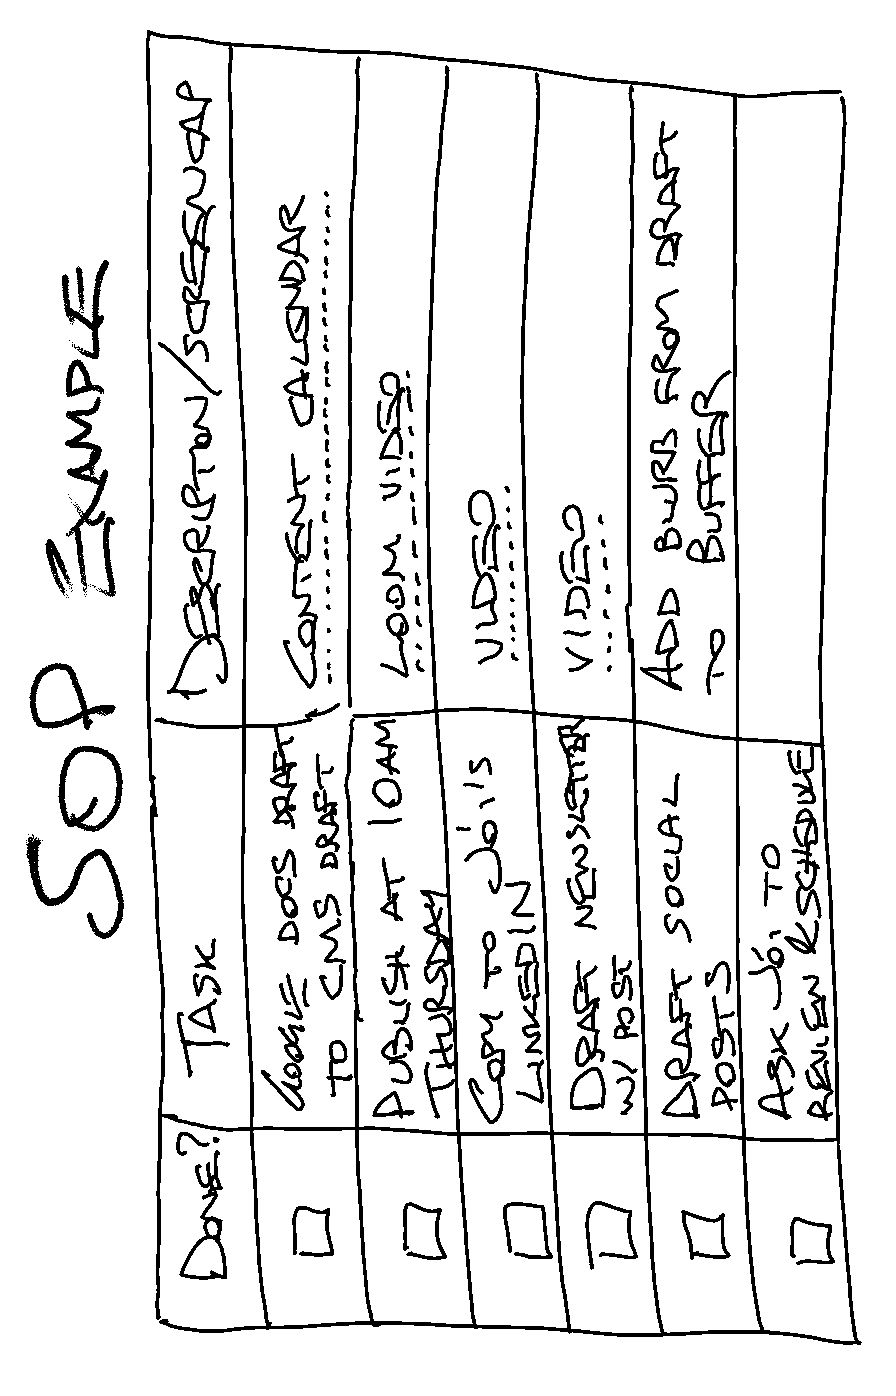 SOP EXAMPLE
DONE?
TASK
DESCRIPTION/SCREENCAP
GOOGLE DOCS DRAFT
TO CMS DRAFT
CONTENT CALENDAR
PUBLISH AT 10AM
THURSDAY
LOOM VIDEO
COPY TO Jói's
LINKEDIN
VIDEO
DRAFT NEWSLETTER
W/ POST
VIDEO
DRAFT SOCIAL
POSTS
ADD BLURB FROM DRAFT
TO BUFFER
ASK Jói TO
REVIEW & SCHEDULE